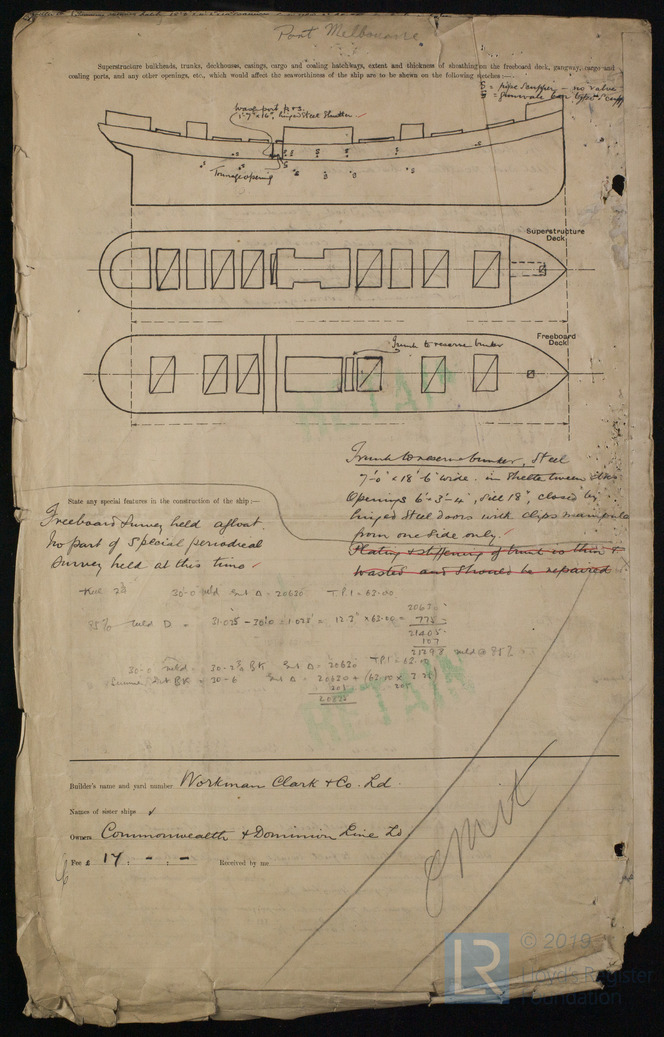 Port Melbourne
Superstructure bulkheads, trunks, deckhouses, casings, cargo and coaling hatchways, extent and thickness of sheathing on the freeboard deck, gangway, cargo and
coaling ports, and any other openings, etc., which would affect the seaworthiness of the ship are to be shewn on the following sketches:—
S = pipe scupper – no valve
= gunwale bar type
Wash port p & s.
hinged Steel Shutter
Tonnage opening
Superstructure
Deck
Freeboard
Deck
Trunk to reserve bunker
Trunk to reserve bunker, Steel
7'-0" × 18'-6" wide. in Shelter tween dks
Openings 6' × 3'-4", Sill 18", closed by
hinged Steel doors with clips
from one side only.
Plating & stiffening of trunk is thin &
wasted and should be repaired
State any special features in the construction of the ship:—
Freeboard Survey held afloat.
No part of Special periodical
Survey held at this time
30'-0 mld Ext Δ = 20620 T.P.I = 62.00
85% mld D = 31.025 - 30.0 = 1.025' = 12.3" × 62.00 =
775
21405
107
mld @ 85%
30-0 mld = 30-2¾ BK Ext Δ = 20620 T.P.I = 62.
Summer BK = 30-6 Ext Δ = 20620 +
RETAIN
RETAIN
Builder's name and yard number Workman Clark & Co. Ld.
Names of sister ships
Owners Commonwealth & Dominion Line Ld
Fee £ 17 : - : - Received by me
omit
© 2019
LR Lloyd's Register
Foundation